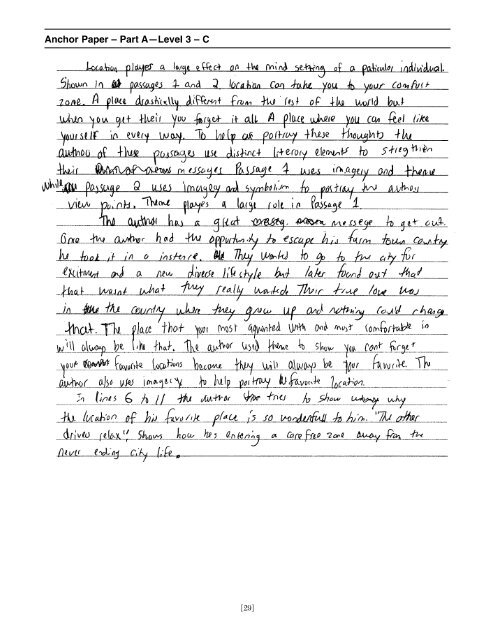 Anchor Paper – Part A—Level 3 – C
Location playes a large effect on the mind setting of a paticular individual.
Shown in passages 1 and 2 location can take you to your comfort
zone. A place drastically different from the rest of the world but
when you get their you forget it all. A place where you can feel like
yourself in every way. To help portray these thoughts the
author of these passages use distinct literary elements to stregthen
their messages Passage 1 uses imagery and theme
While Passage 2 uses Imagery and symbolism to portray the authors
view points. Theme playes a large role in Passage 1.
The author has a great message to get out.
Once the author had the opportunity to escape his farm town country
he took it in a instence. They wanted to go to the city for
exitment and a new diverse lifestyle but later found out that
that wasnt what they really wanted. Their true love was
in the country where they grew up and nothing could change
that. The place that your most aquainted with and most comfortable in
will always be like that. The author used theme to show you cant forget
your favorite locations because they will always be your favorite. The
author also uses imagery to help portray favorite location.
In lines 6 to 11 the author tries to show why
the location of his favorite place is so wonderfull to him. "The other
drives relax" shows how hes entering a care free zone away from the
never ending city life.
[29]